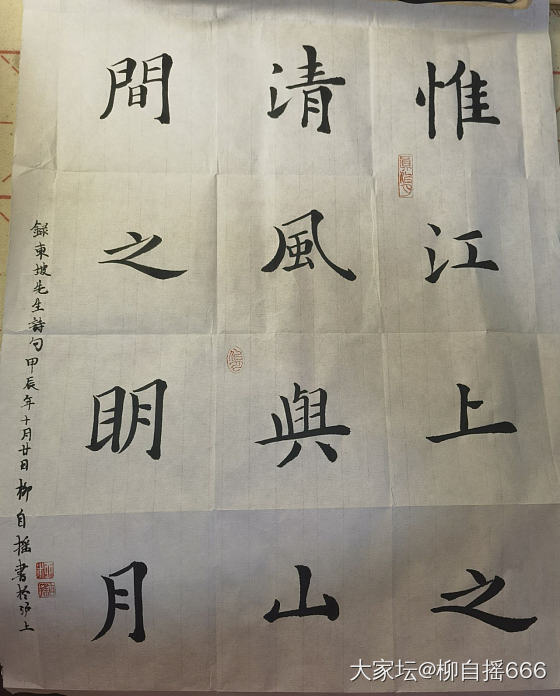 惟江上之
清風與山
間之明月
錄東坡先生詩句甲辰年十月廿日柳自摇書於沪上
大家坛@柳自摇666